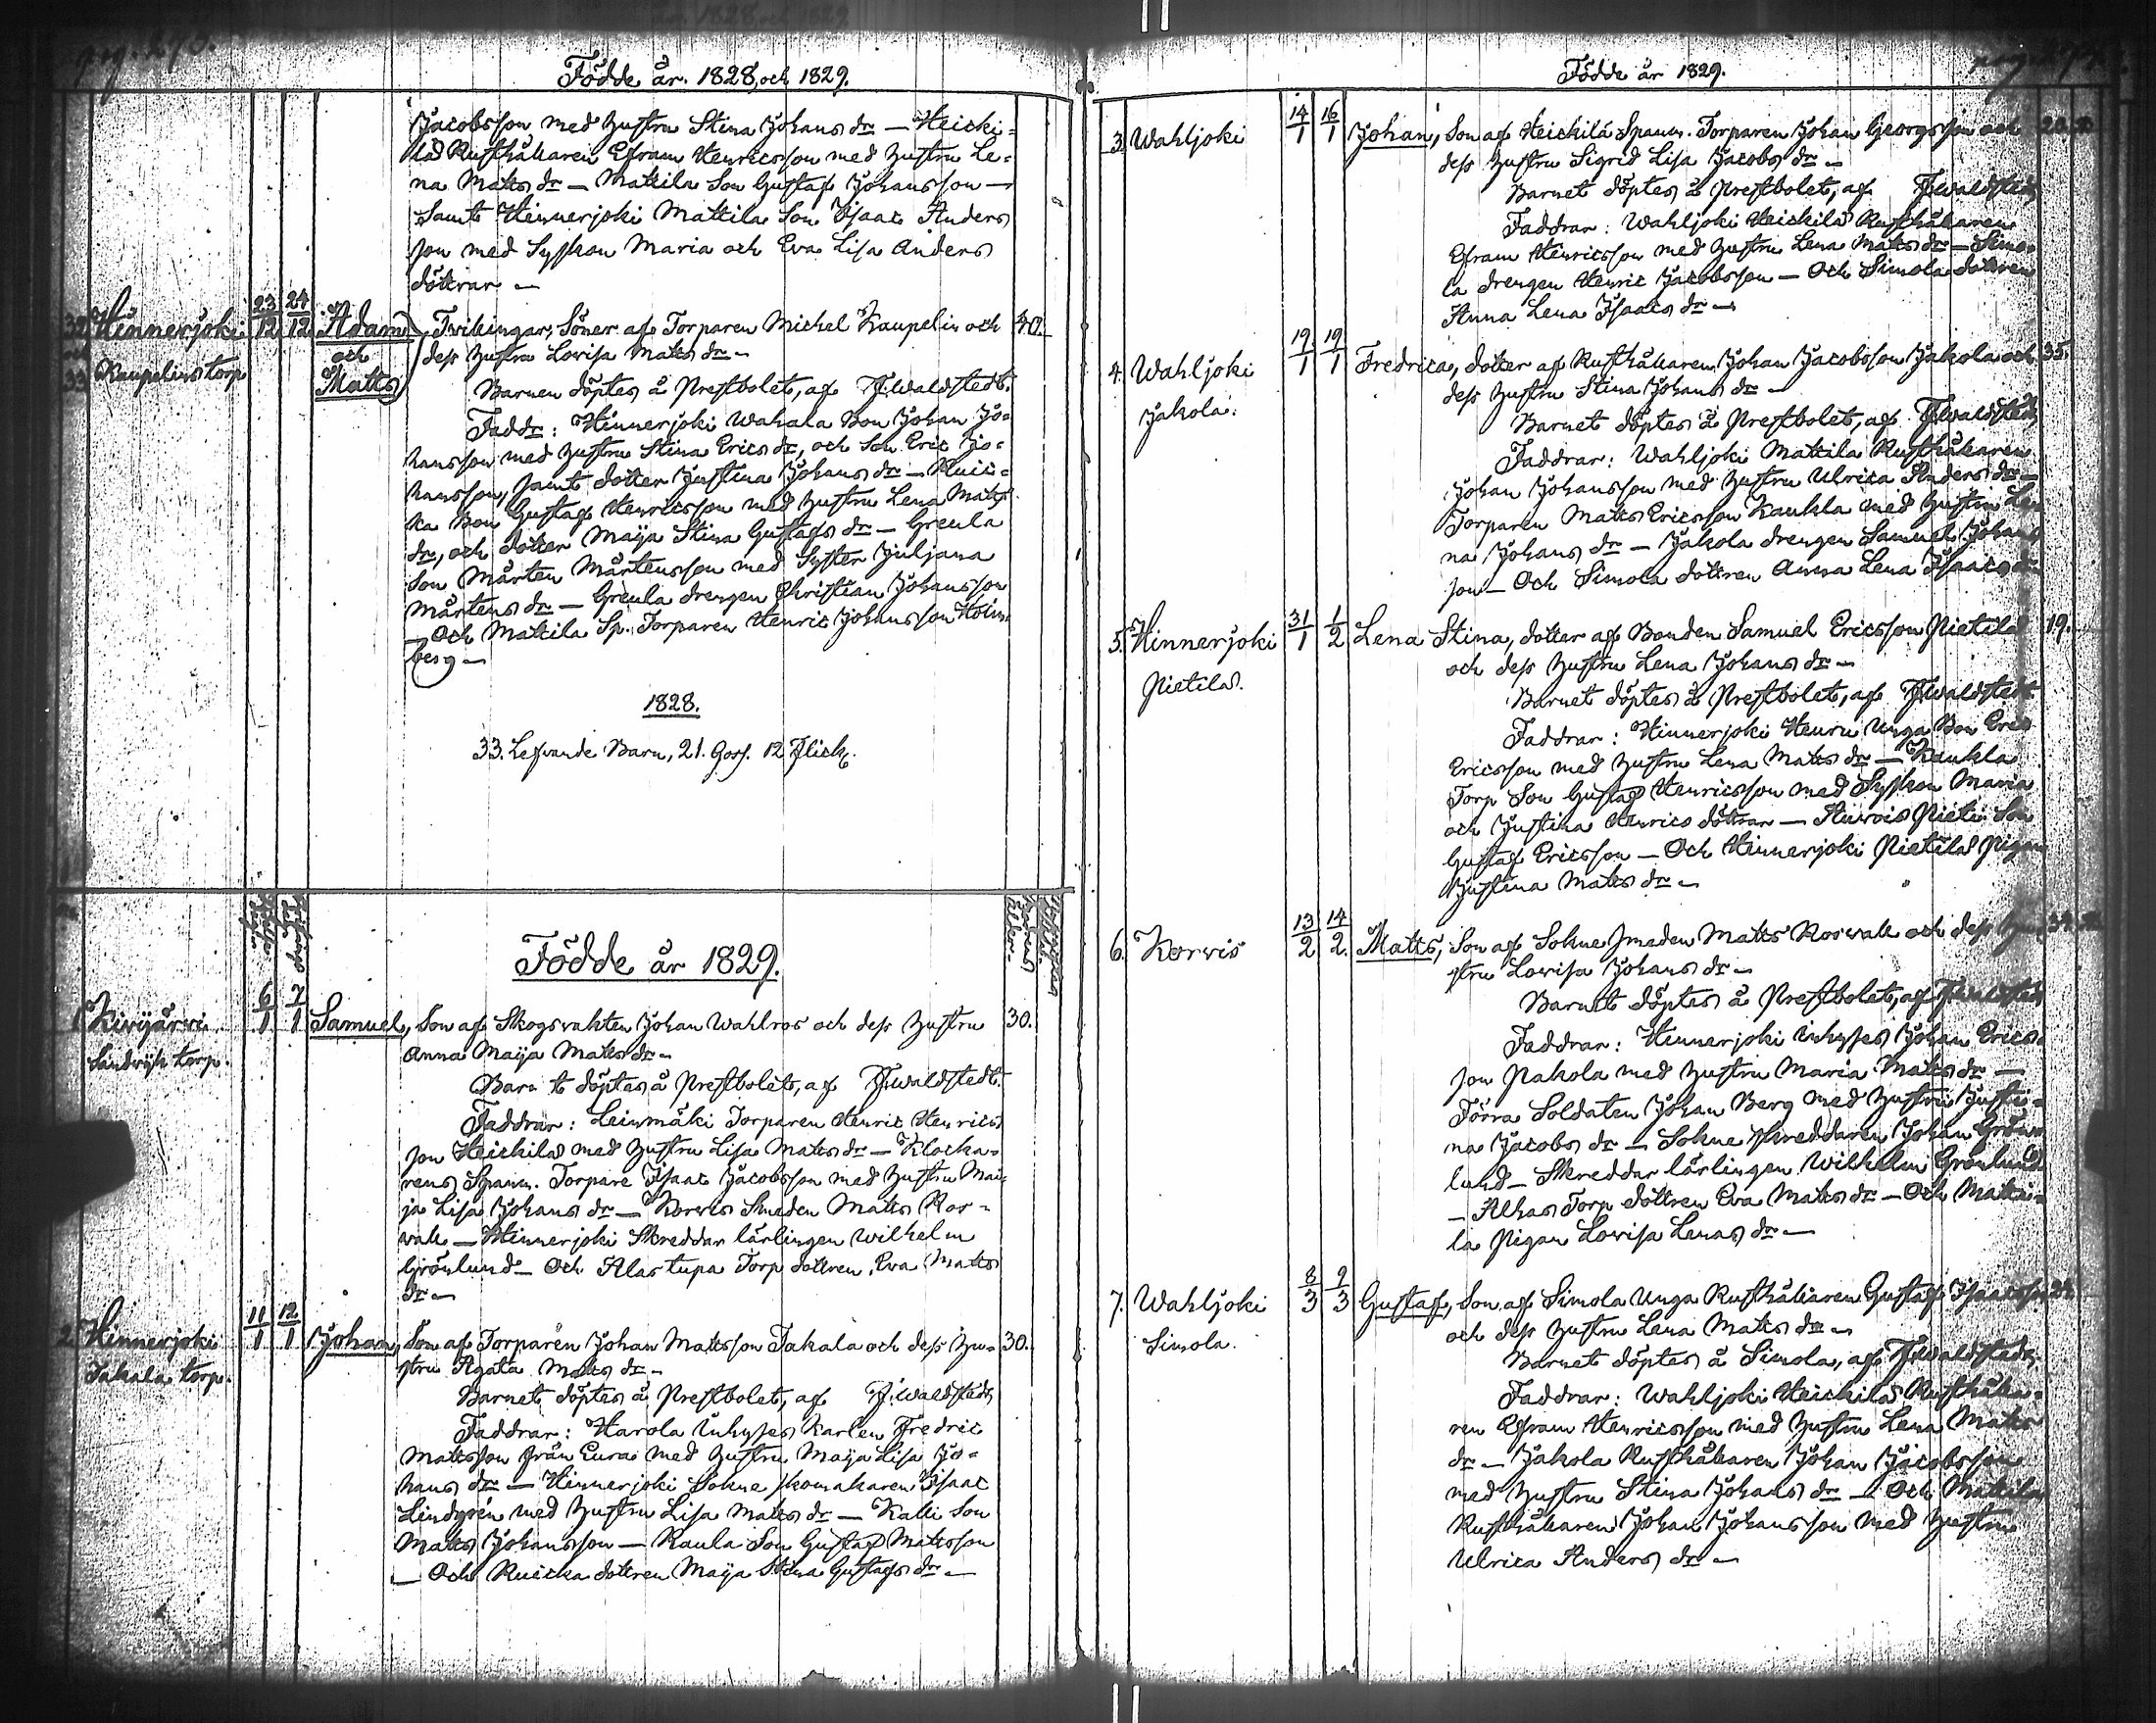 Födde år. 1828, och 1829.
Jacobsson med hustru Stina Johans dr — Heicki-
lä Rusthållaren Efram Henricsson med hustru Le-
na Matts dr — Mattila Son Gustaf Johansson —
Samt Hinnerjoki Mattila Son Isaac Anders
son med Syskon Maria och Eva Lisa Anders
döttrar —
32 Hinnerjoki 23/12 24/12 Adam Tvillingar, Söner af Torparen Michel Kaupelin och 40.
och
33 Kaupelins torp Matts dess hustru Lovisa Matts dr —
Barnen döptes å Prestbolet, af F. Waldstedt.
Faddr: Hinnerjoki Wahala Bon Johan Jo-
hansson med hustru Stina Erics dr, och Son Eric Jo-
hansson, samt dotter Justina Johans dr — Ruic-
ka Bon Gustaf Henricsson med hustru Lena Matts
dr, och dotter Maija Stina Gustafs dr — Greula
Son Mårten Mårtensson med Syster Juljana
Mårtens dr — Greula drengen Christian Johansson
— Och Mattila Sp. Torparen Henric Johansson Holm-
berg —
1828.
33. Lefvande Barn, 21. Goss. 12 Flick.
Födde år 1829.
1 Kivijärvi 6/1 7/1 Samuel, Son af Skogsvakten Johan Wahlros och dess hustru 30.
Landvik torp. Anna Maija Matts dr —
Barnet döptes å Prestbolet, af F. Waldstedt.
Faddrar: Leinmäki Torparen Henric Henrics
son Heickilä med hustru Lisa Matts dr — Klocka-
rens Spann. Torpare Isaac Jacobsson med hustru Mai-
ja Lisa Johans dr — Korvis Smeden Matts Ros-
wall — Hinnerjoki Skreddar lärlingen Wilhelm
Grönlund — Och Alastupa Torp dottren, Eva Matts
dr —
2 Hinnerjoki 11/1 12/1 Johan, Son af Torparen Johan Mattsson Takala och dess hu- 30.
Takala torp. stru Agata Matts dr —
Barnet döptes å Prestbolet, af F. Waldstedt
Faddrar: Harola Inhyses Karlen Fredric
Mattsson från Eura med hustru Maija Lisa Jo-
hans dr — Hinnerjoki Sokne skomakaren Isaac
Lindgrén med hustru Lisa Matts dr — Kalli Son
Matts Johansson — Raula Son Gustaf Mattsson
— Och Ruicka dottren Maija Stina Gustafs dr —
Födde år 1829.
3. Wahljoki 14/1 16/1 Johan, Son af Heickilä Spann. Torparen Johan Georgsson och
dess hustru Sigrid Lisa Jacobs dr —
Barnet döptes å Prestbolet, af F. Waldstedt
Faddrar: Wahljoki Heickilä Rusthållaren
Efram Henricsson med hustru Lena Matts dr — Simo-
la drengen Henric Jacobsson — Och Simola dottren
Anna Lena Isaacs dr —
4. Wahljoki 19/1 19/1 Fredrica, dotter af Rusthållaren Johan Jacobsson Jakola och 35.
Jakola. dess hustru Stina Johans dr —
Barnet döptes å Prestbolet, af F. Waldstedt
Faddrar: Wahljoki Mattila Rusthållaren
Johan Johansson med hustru Ulrica Anders dr —
Torparen Matts Ericsson Kaukla med hustru Le-
na Johans dr — Jakola drengen Samuel Johans
son — Och Simola dottren Anna Lena Isaacs dr
5. Hinnerjoki 31/1 1/2 Lena Stina, dotter af Bonden Samuel Ericsson Pietilä 19.
Pietilä. och dess hustru Lena Johans dr —
Barnet döptes å Prestbolet, af F. Waldstedt
Faddrar: Hinnerjoki Heuru Unga Bon Eric
Ericsson med hustru Lena Matts dr — Kaukla
Torp Son Gustaf Henricsson med Syskon Maria
och Justina Henrics döttrar — Korvis Son
Gustaf Ericsson — Och Hinnerjoki Pietilä Pigan
Justina Matts dr —
6. Korvis 13/2 14/2. Matts, Son af Sokne Smeden Matts Roswall och dess hu-
stru Lovisa Johans dr —
Barnet döptes å Prestbolet, af F. Waldstedt
Faddrar: Hinnerjoki Inhyses Johan Erics-
son Pakola med hustru Maria Matts dr —
Förra Soldaten Johan Berg med hustru Justi-
na Jacobs dr — Sokne Skreddaren Johan Grön-
lund — Skreddar lärlingen Wilhelm Grönlund
— Alhas Torp dottren Eva Matts dr — Och Matti-
la Pigan Lovisa Lenas dr —
7. Wahljoki 8/3 9/3 Gustaf, Son af Simola Unga Rusthållaren Gustaf Isaacsson
Simola. och dess hustru Lena Matts dr —
Barnet döptes å Simola, af F. Waldstedt
Faddrar: Wahljoki Heickilä Rusthålla-
ren Efram Henricsson med hustru Lena Matts
dr — Jakola Rusthållaren Johan Jacobsson
med hustru Stina Johans dr — Och Mattila
Rusthållaren Johan Johansson med hustru
Ulrica Anders dr —